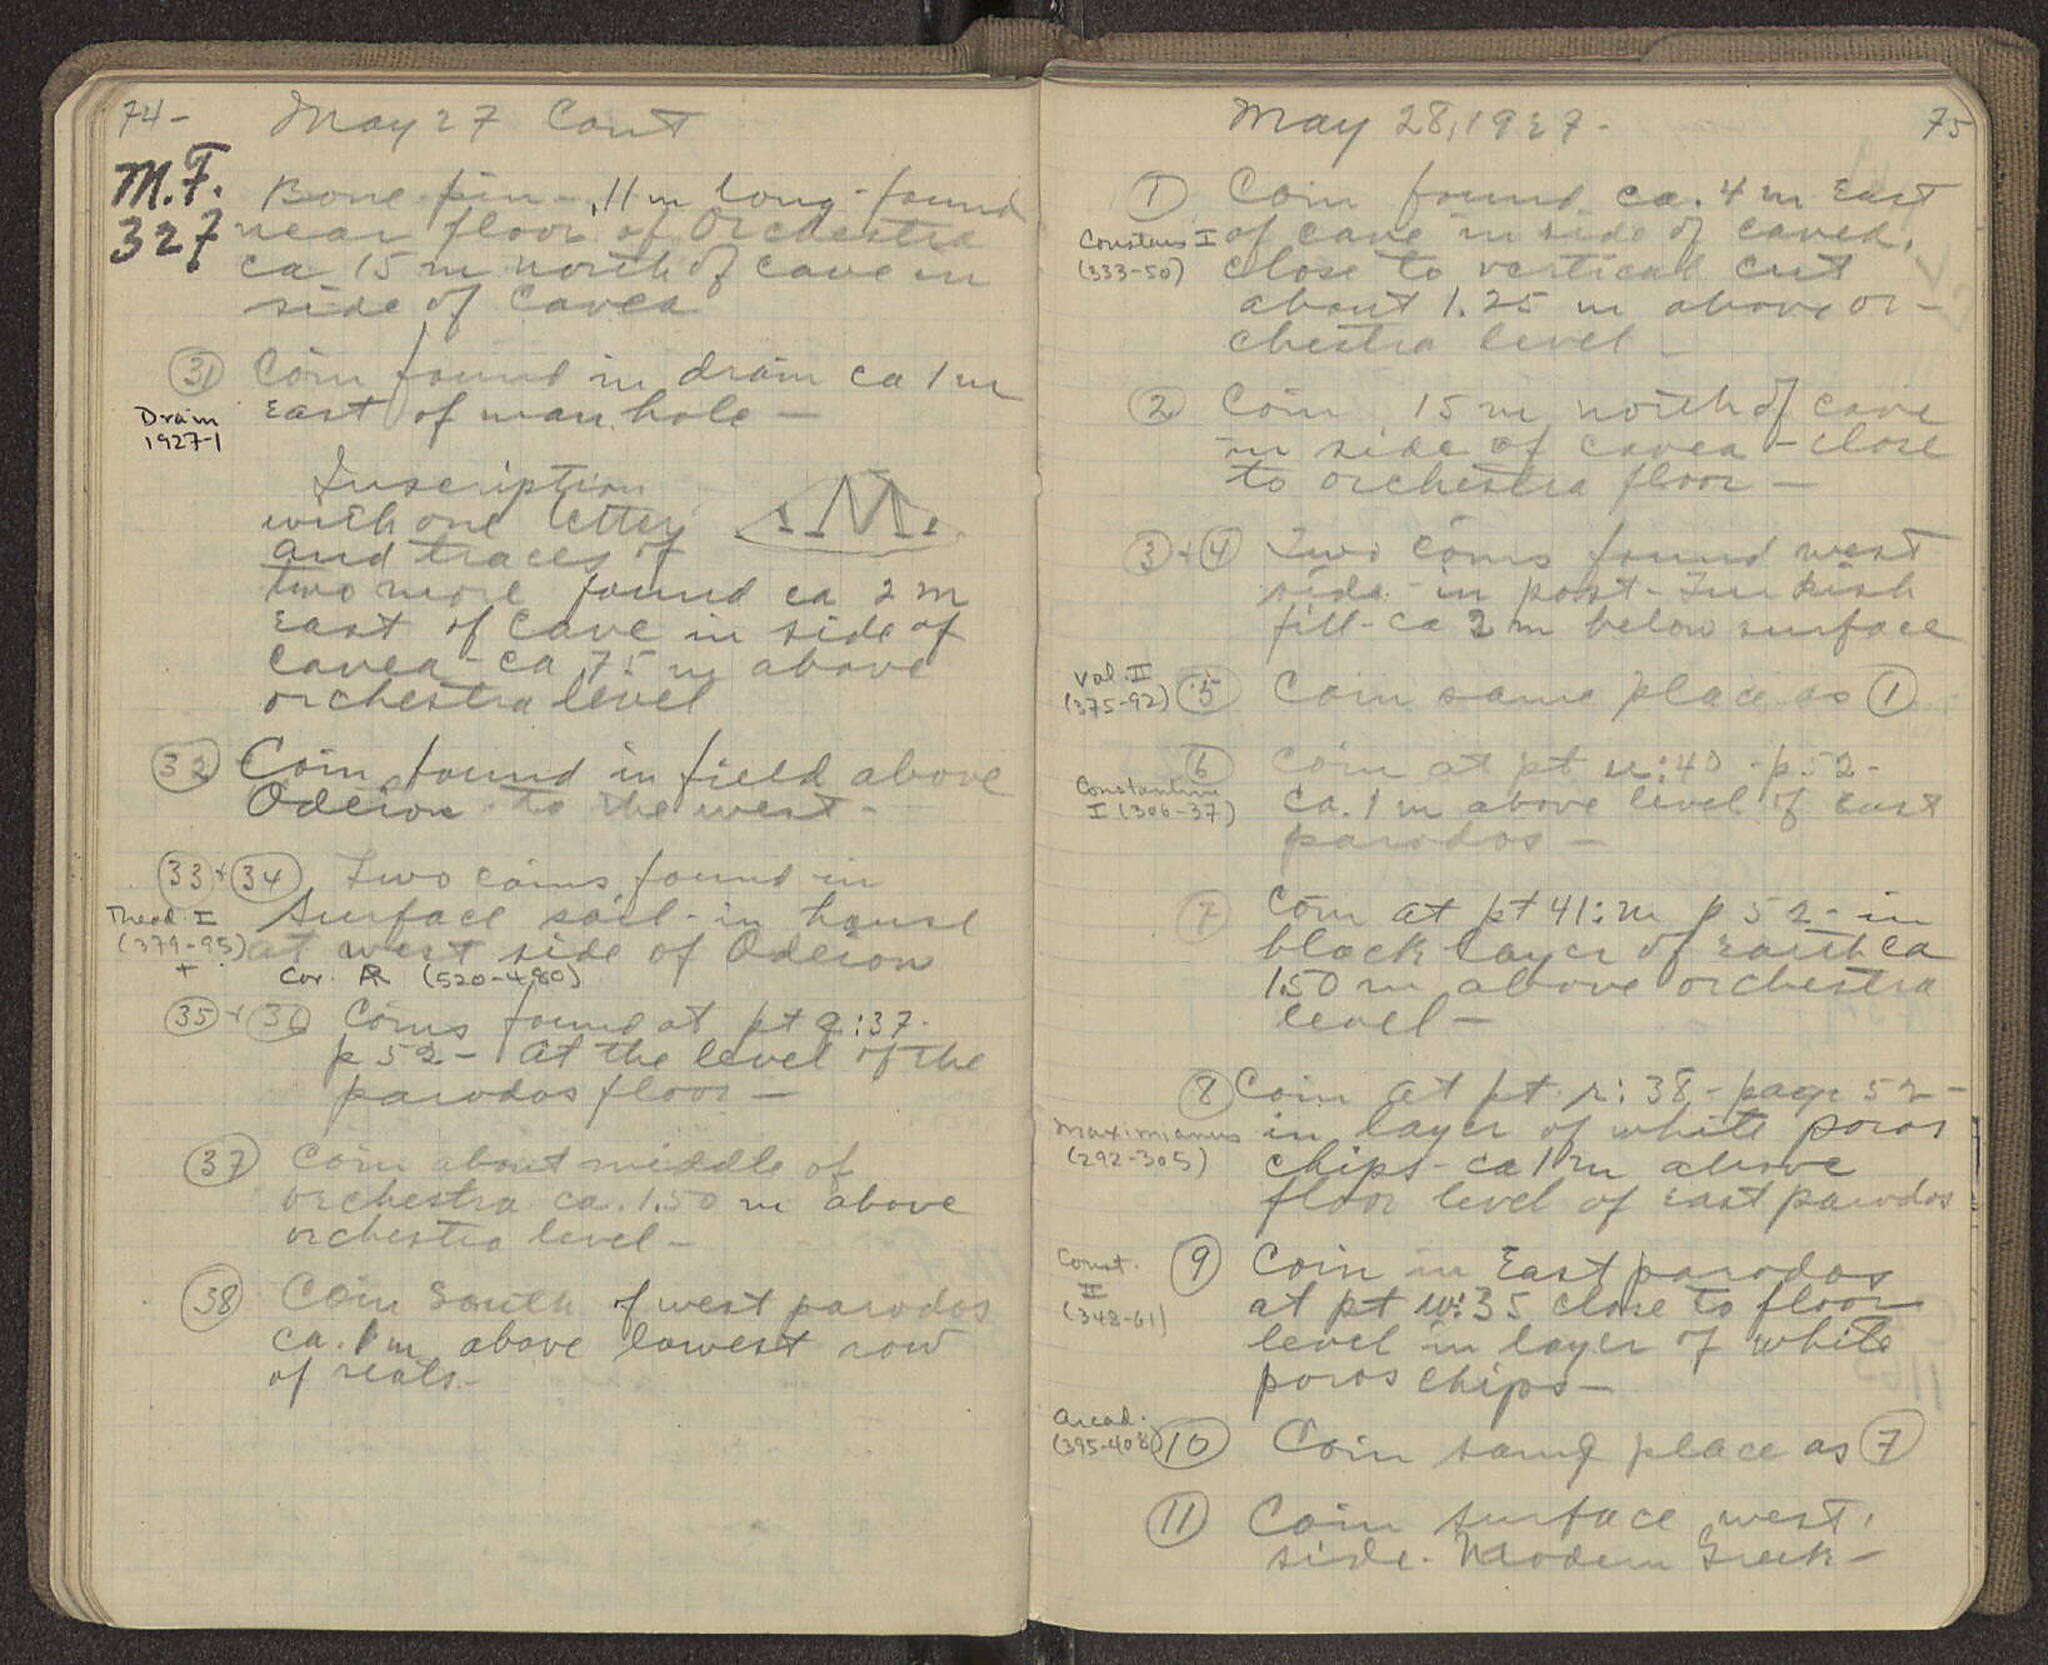 74-
May 27 Cont
M.F.
327
Bone pin - .11 m long - found
near floor of Orchestra
ca 15 m north of cave in
side of cavea
31 Coin found in drain ca 1 m
East of man hole -
Drain
1927-1
Inscription
with one letter
and traces of
two more found ca 2 m
East of cave in side of
cavea - ca .75 m above
orchestra level
M
32 Coin found in field above
Odeion to the west -
33 + 34 Two coins found in
surface soil - in house
at west side of Odeion
Theod. I
(379-95)
+
Cor. AR (520-480)
35 + 36 Coins found at pt q:37-
p 52 - at the level of the
parodos floor -
37 Coin about middle of
orchestra ca. 1.50 m above
orchestra level -
38 Coin South of west parodos
ca. 1 m above lowest row
of seats -
May 28, 1927-
75
1 Coin found ca. 4 m East
of cave in side of cavea,
close to vertical cut
about 1.25 m above or-
chestra level -
Constans I
(333-50)
2 Coin 15 m north of cave
in side of cavea - close
to orchestra floor -
3 + 4 Two coins found west
side - in post-Turkish
fill - ca 2 m below surface
Val. II
(375-92)
5 Coin same place as 1
6 Coin at pt u:40 - p 52 -
ca. 1 m above level of East
parodos -
Constantine
I (306-37)
7 Coin at pt 41:m p 52 - in
black layer of earth ca
1.50 m above orchestra
level -
8 Coin at pt. r:38 - page 52 -
in layer of white poros
chips - ca 1 m above
floor level of East parodos
Maximianus
(292-305)
9 Coin in East parodos
at pt w:35 close to floor
level in layer of white
poros chips -
Const.
II
(348-61)
Arcad.
(395-408)
10 Coin same place as 7
11 Coin surface west
side. Modern Greek -